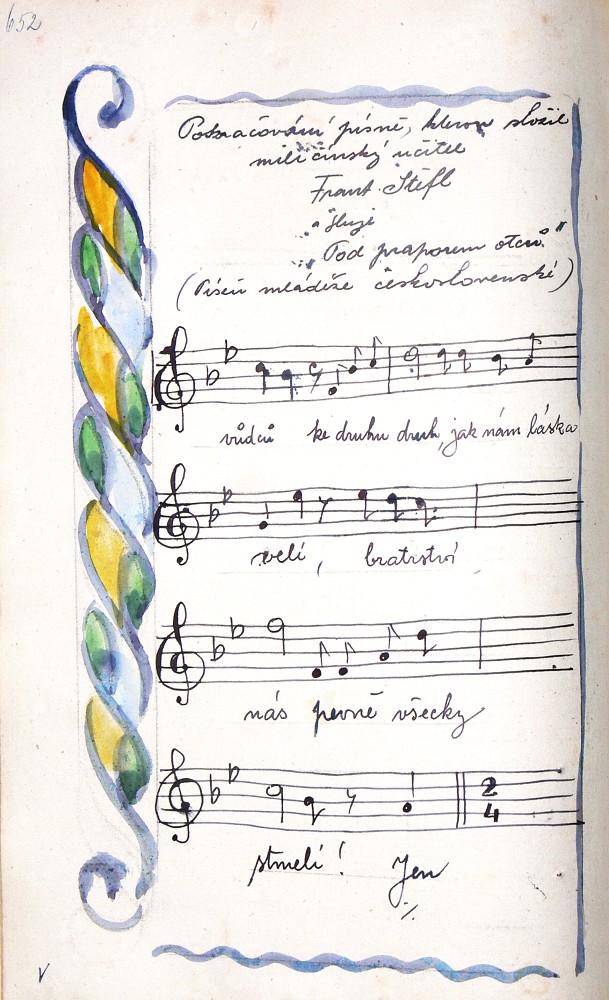 652
Pokračování písně, kterou složil
miličínský učitel
Frant. Štefl
„Sluje
„Pod praporem otců."
(Píseň mládeže československé)
vůdců ke druhu druh, jak nám láska
velí, bratrství
nás pevně všecky
2
4
stmelí! Jen
V